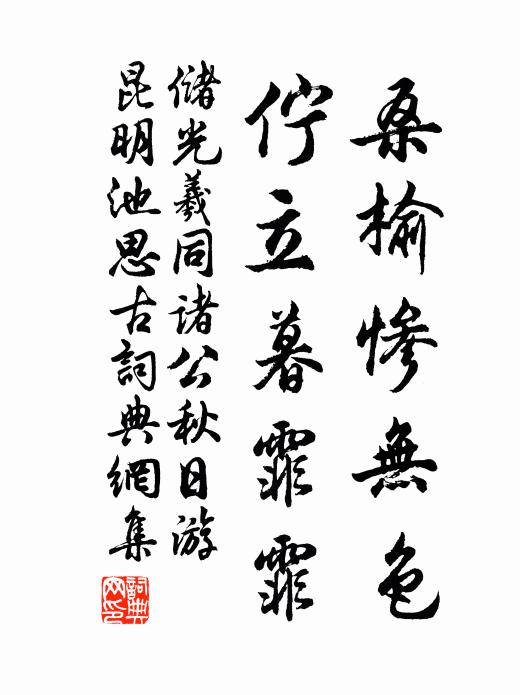 桑榆慘無色
佇立暮霏霏
儲光羲同諸公秋日游
昆明池思古詞典網集
詞典網印